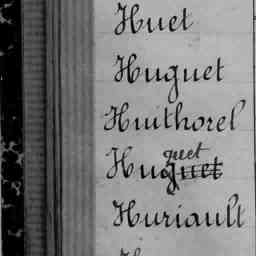 Huet
Huguet
Huithorel
Huguet
Huriault